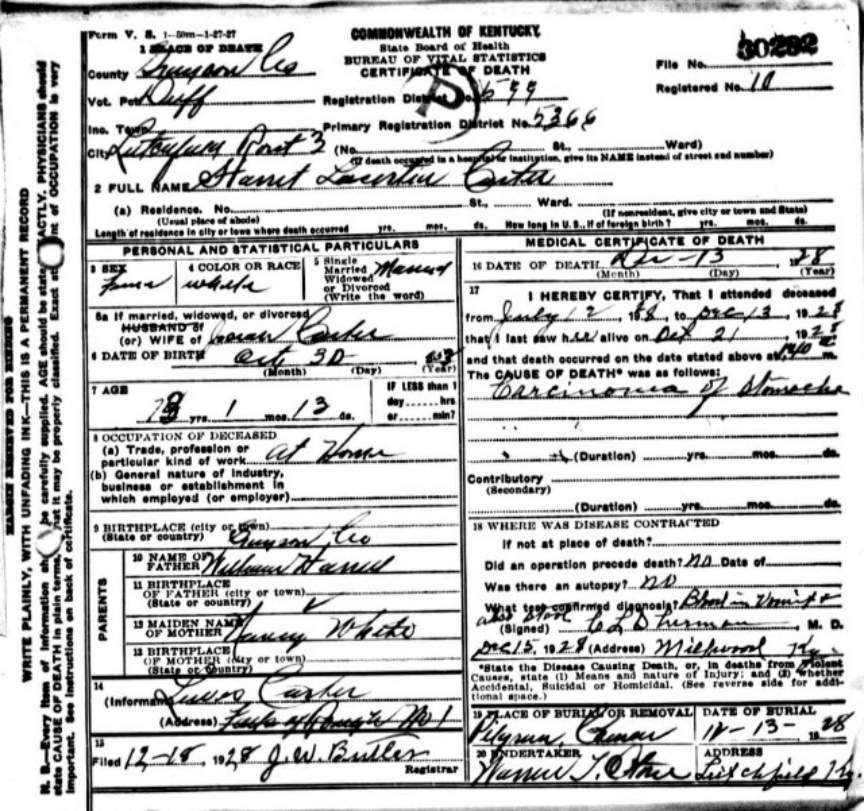 Form V. S. 1-50m-1-27-27
COMMONWEALTH OF KENTUCKY
State Board of Health
BUREAU OF VITAL STATISTICS
CERTIFICATE OF DEATH
File No. 30292
Registered No. 10
1 PLACE OF DEATH
County Grayson Co
Vot. Pct Duff
Registration District No. 599
Inc. Town
Primary Registration District No. 5366
City Rout 3 (No. St., Ward)
(If death occurred in a hospital or institution, give its NAME instead of street and number)
2 FULL NAME Carter
(a) Residence. No. St., Ward.
(Usual place of abode) (If nonresident, give city or town and State)
Length of residence in city or town where death occurred yrs. mos. ds. How long in U. S., if of foreign birth? yrs. mos. ds.
PERSONAL AND STATISTICAL PARTICULARS
3 SEX
4 COLOR OR RACE White
5 Single Married Widowed or Divorced (Write the word) Married
5a If married, widowed, or divorced
HUSBAND of
(or) WIFE of Carter
6 DATE OF BIRTH Oct 30
(Month) (Day) (Year)
7 AGE
yrs. 1 mos. 13 ds.
IF LESS than 1
day hrs
or min?
8 OCCUPATION OF DECEASED
(a) Trade, profession or
particular kind of work at Home
(b) General nature of industry,
business or establishment in
which employed (or employer)
9 BIRTHPLACE (city or town)
(State or country) Grayson Co
PARENTS
10 NAME OF
FATHER William
11 BIRTHPLACE
OF FATHER (city or town)
(State or country)
12 MAIDEN NAME
OF MOTHER Nancy White
13 BIRTHPLACE
OF MOTHER (city or town)
(State or Country)
14
(Informant Carter
(Address) No 1
15
Filed 12-18, 1928 J. W. Butler
Registrar
MEDICAL CERTIFICATE OF DEATH
16 DATE OF DEATH Dec - 13 1928
(Month) (Day) (Year)
17
I HEREBY CERTIFY, That I attended deceased
from July 12, to Dec 13, 1928
that I last saw her alive on 21, 1928
and that death occurred on the date stated above at m.
The CAUSE OF DEATH* was as follows:
Carcinoma of Stomache
(Duration) yrs. mos. ds.
Contributory
(Secondary)
(Duration) yrs. mos. ds.
18 WHERE WAS DISEASE CONTRACTED
If not at place of death?
Did an operation precede death? NO Date of
Was there an autopsy? NO
What test confirmed diagnosis? Blood in Vomit &
also stool
(Signed) C L Sherman, M. D.
Dec 15, 1928 (Address) Millwood Ky.
*State the Disease Causing Death, or, in deaths from Violent
Causes, state (1) Means and nature of Injury; and (2) whether
Accidental, Suicidal or Homicidal. (See reverse side for addi-
tional space.)
19 PLACE OF BURIAL OR REMOVAL
DATE OF BURIAL
12-13-1928
20 UNDERTAKER
ADDRESS
Leitchfield Ky.
MARGIN RESERVED FOR BINDING
WRITE PLAINLY, WITH UNFADING INK—THIS IS A PERMANENT RECORD
N. B.—Every item of information should be carefully supplied. AGE should be stated EXACTLY. PHYSICIANS should
state CAUSE OF DEATH in plain terms, that it may be properly classified. Exact statement of OCCUPATION is very
important. See instructions on back of certificate.